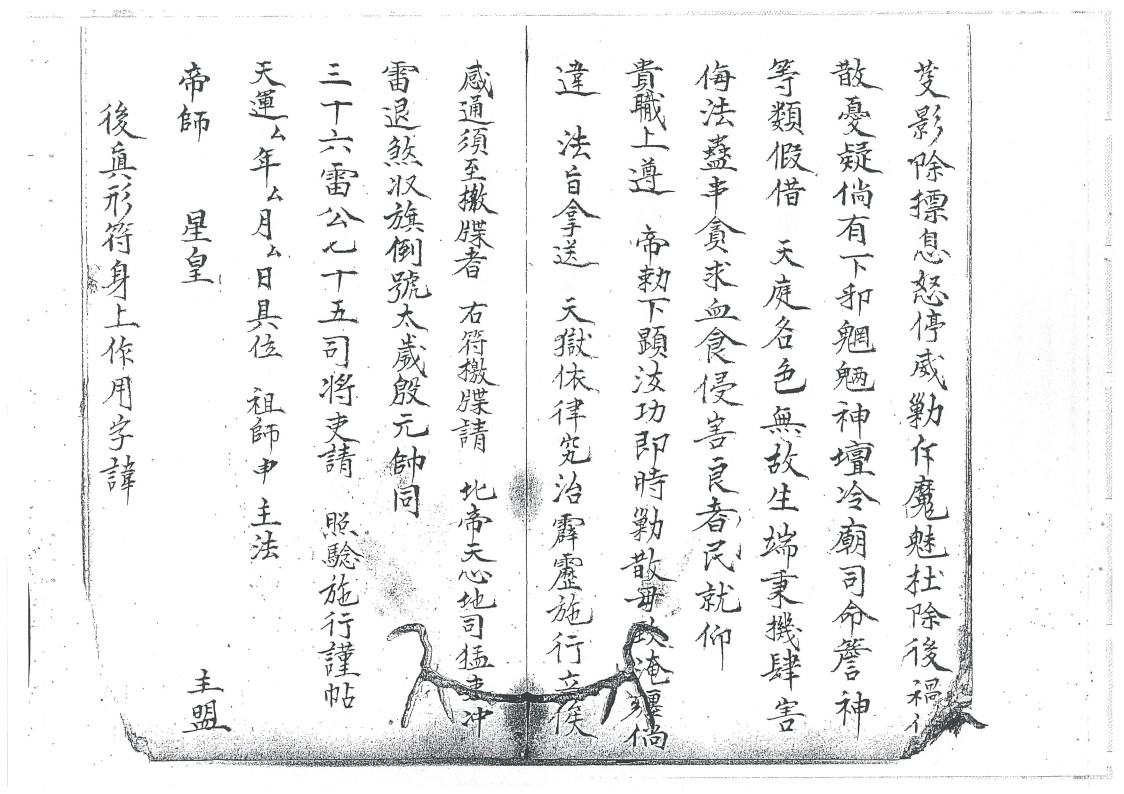 芟影除摽息怒停威勦斥魔魅杜除後禍仍
散憂疑倘有下卯魍魎神壇冷廟司命簷神
等類假借　天庭名色無故生端秉機肆害
侮法蠱事貪求血食侵害良春民就仰
貴職上遵　帝勅下顕汝功即時勦散毋致淹纏倘
違　法旨拿送　天獄依律究治霹靂施行立俟
感通須至檄牒者　右符檄牒請　北帝天心地司猛吏冲
雷退煞収旗倒號太歲殷元帥同
三十六雷公七十五司将吏請　照驗施行謹帖
天運厶年厶月厶日具位　祖師申主法
帝師　星皇　主盟
後眞形符身上作用字諱